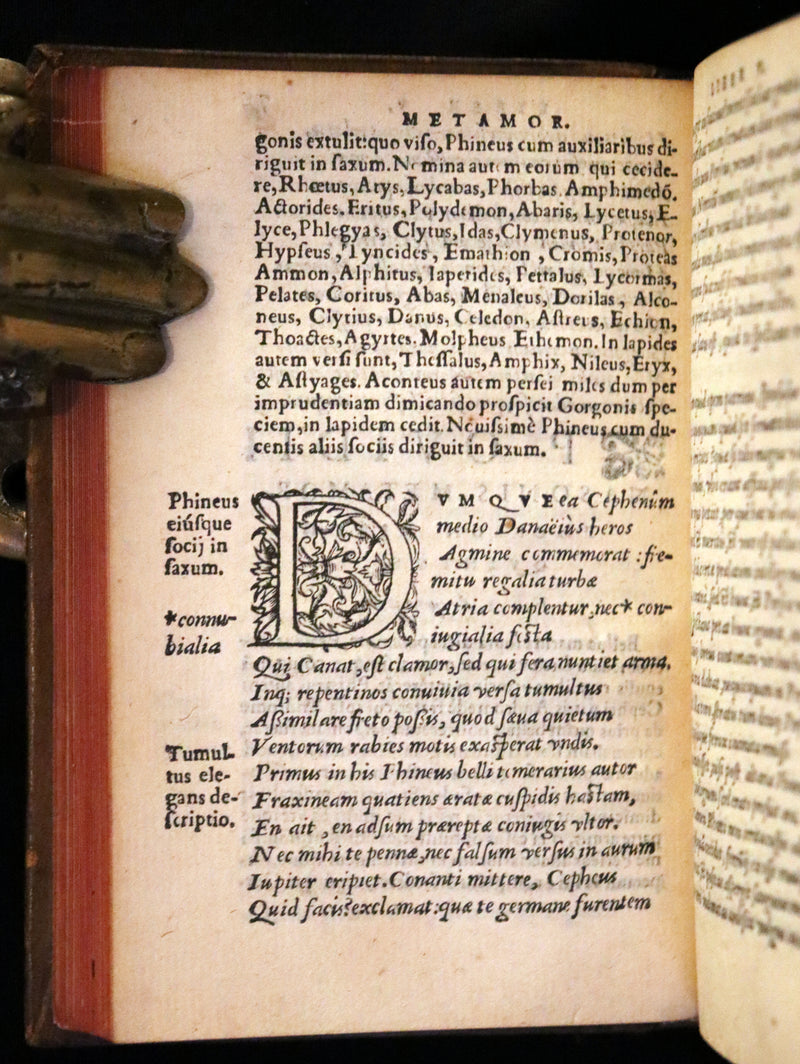 METAMOR.
gonis extulit:quo viso,Phineus cum auxiliaribus di-
riguit in saxum.Nomina autem eorum qui cecide-
re,Rhœtus,Atys,Lycabas,Phorbas Amphimedō,
Actorides.Eritus,Polydemon,Abaris, Lycetus,E-
lyce,Phlegyas, Clytus,Idas,Clymenus, Protenor,
Hypseus,Lyncides, Emathion ,Cromis,Proteas
Ammon,Alphitus, Iapetides, Pettalus, Lycormas,
Pelates, Coritus, Abas, Menaleus, Dorilas, Alco-
neus, Clytius, Danus, Celedon, Astreus, Echion,
Thoactes,Agyrtes.Molpheus Ethemon.In lapides
autem versi sunt,Thessalus,Amphix, Nileus,Eryx,
& Astyages. Aconteus autem persei miles dum per
imprudentiam dimicando prospicit Gorgonis spe-
ciem,in lapidem cedit.Nouissimè Phineus cum du-
centis aliis sociis diriguit in saxum.
Phineus
eiúsque
socij in
saxum.
*connu-
bialia
DVMQVE ea Cephenûm
medio Danaëius heros
Agmine commemorat :fre-
mitu regalia turbæ
Atria complentur,nec* con-
iugialia festa
Qui Canat,est clamor,sed qui fera nuntiet arma.
Inq; repentinos conuiuia versa tumultus
Assimilare freto possis, quod sæua quietum
Ventorum rabies motis exasperat vndis.
Tumul-
tus ele-
gans de-
scriptio.
Primus in his Phineus belli temerarius autor
Fraxineam quatiens æratæ cuspidis hastam,
En ait ,en adsum præreptæ coniugis vltor.
Nec mihi te pennæ,nec falsum versus in aurum
Iupiter eripiet.Conanti mittere, Cepheus
Quid facis?exclamat:quæ te germane furentem
LIBER V.